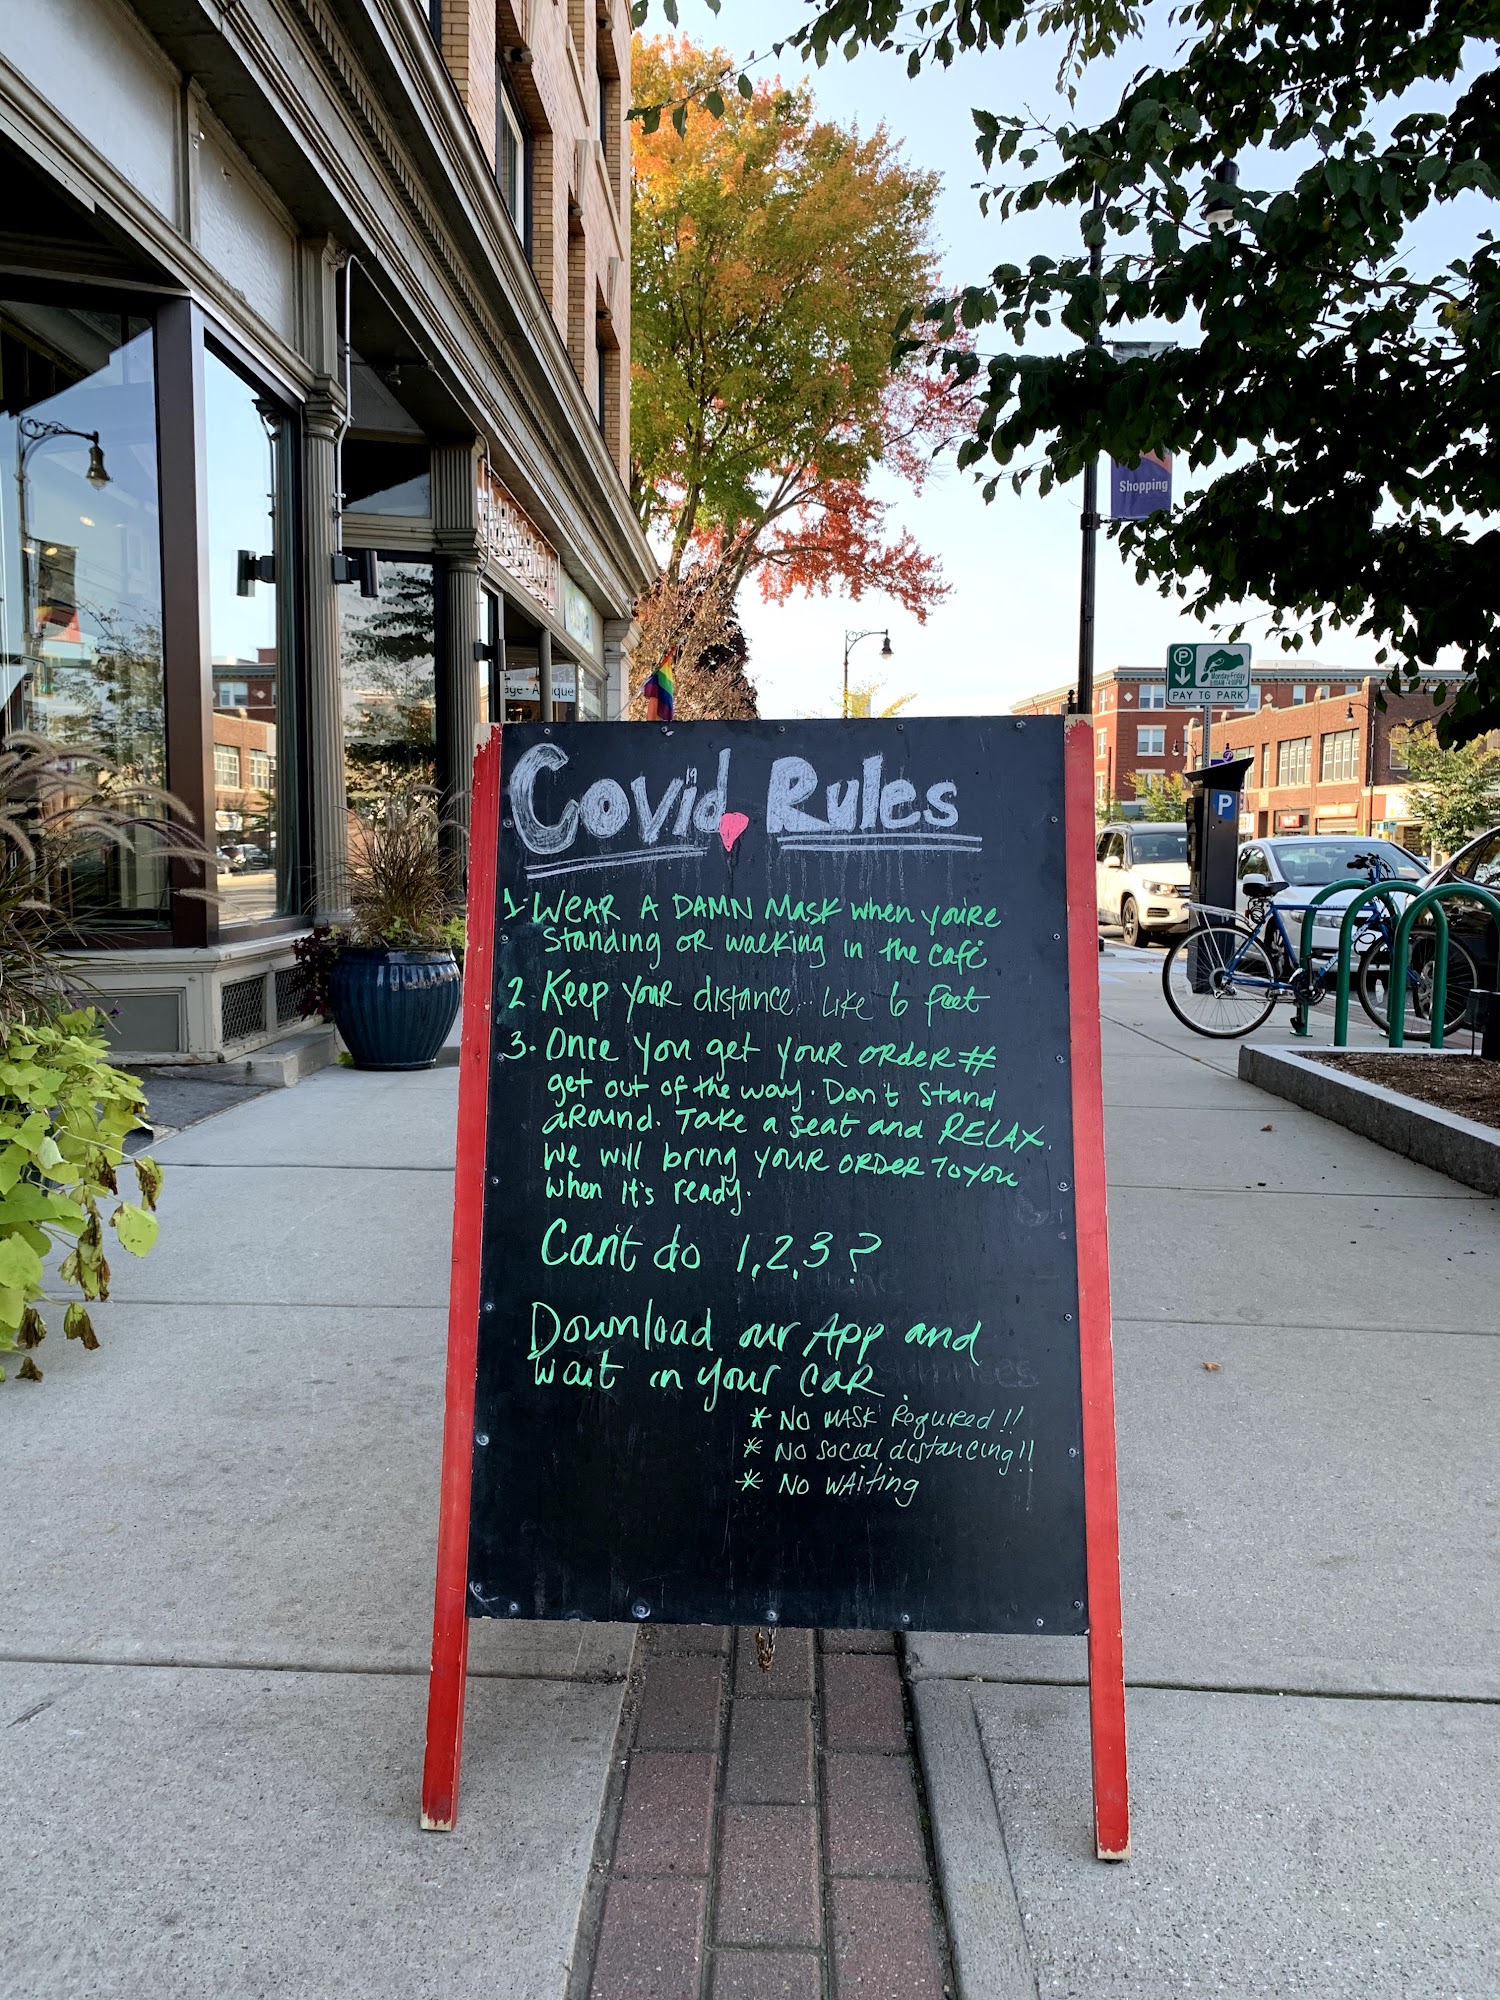 Shopping
P
Monday-Friday
8:00AM-6:00PM
PAY TO PARK
P
Covid 19 Rules
1. WEAR A DAMN Mask when you're
standing OR walking in the café
2. Keep your distance... like 6 feet
3. Once you get your order #
get out of the way. Don't stand
around. Take a seat and RELAX.
We will bring your ORDER To you
when it's ready.
Can't do 1,2,3?
Download our App and
wait in your CAR.
* NO MASK Required!!
* NO social distancing!!
* NO WAiting